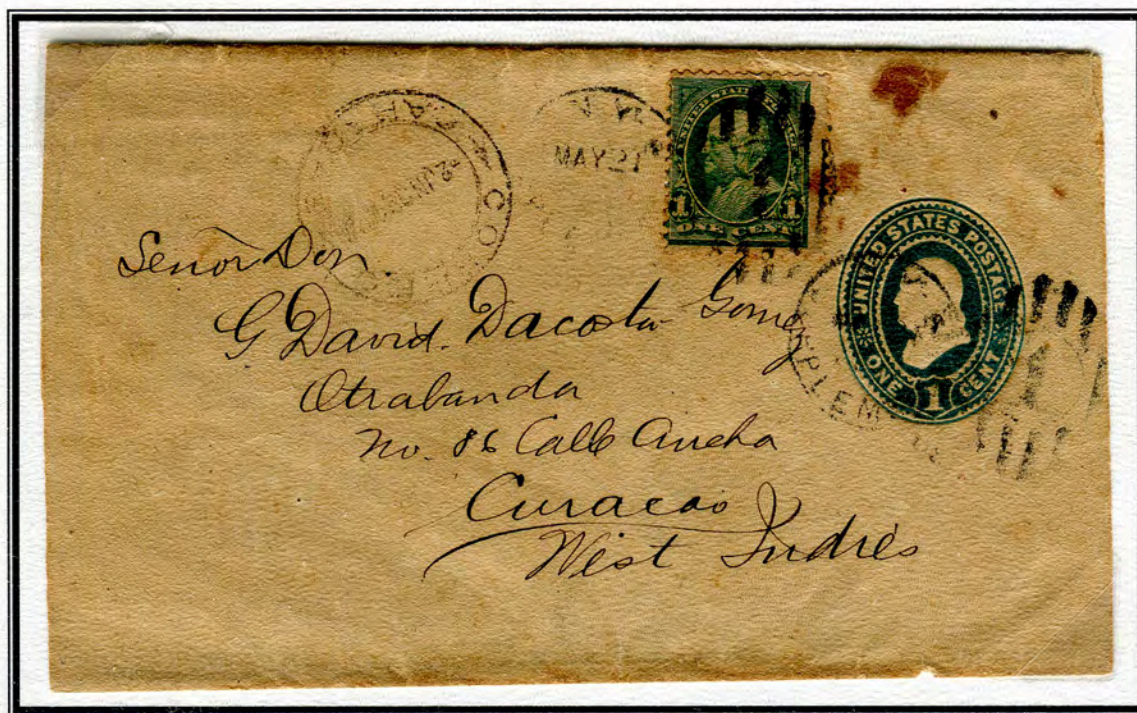 MAY 27
UNITED STATES POSTAGE
1 1
ONE CENT
UNITED STATES POSTAGE
ONE 1 CENT
Señor Don.
G David. Dacosta Gomez
Otrabanda
No. 86 Calle Ancha
Curacao
West Indies